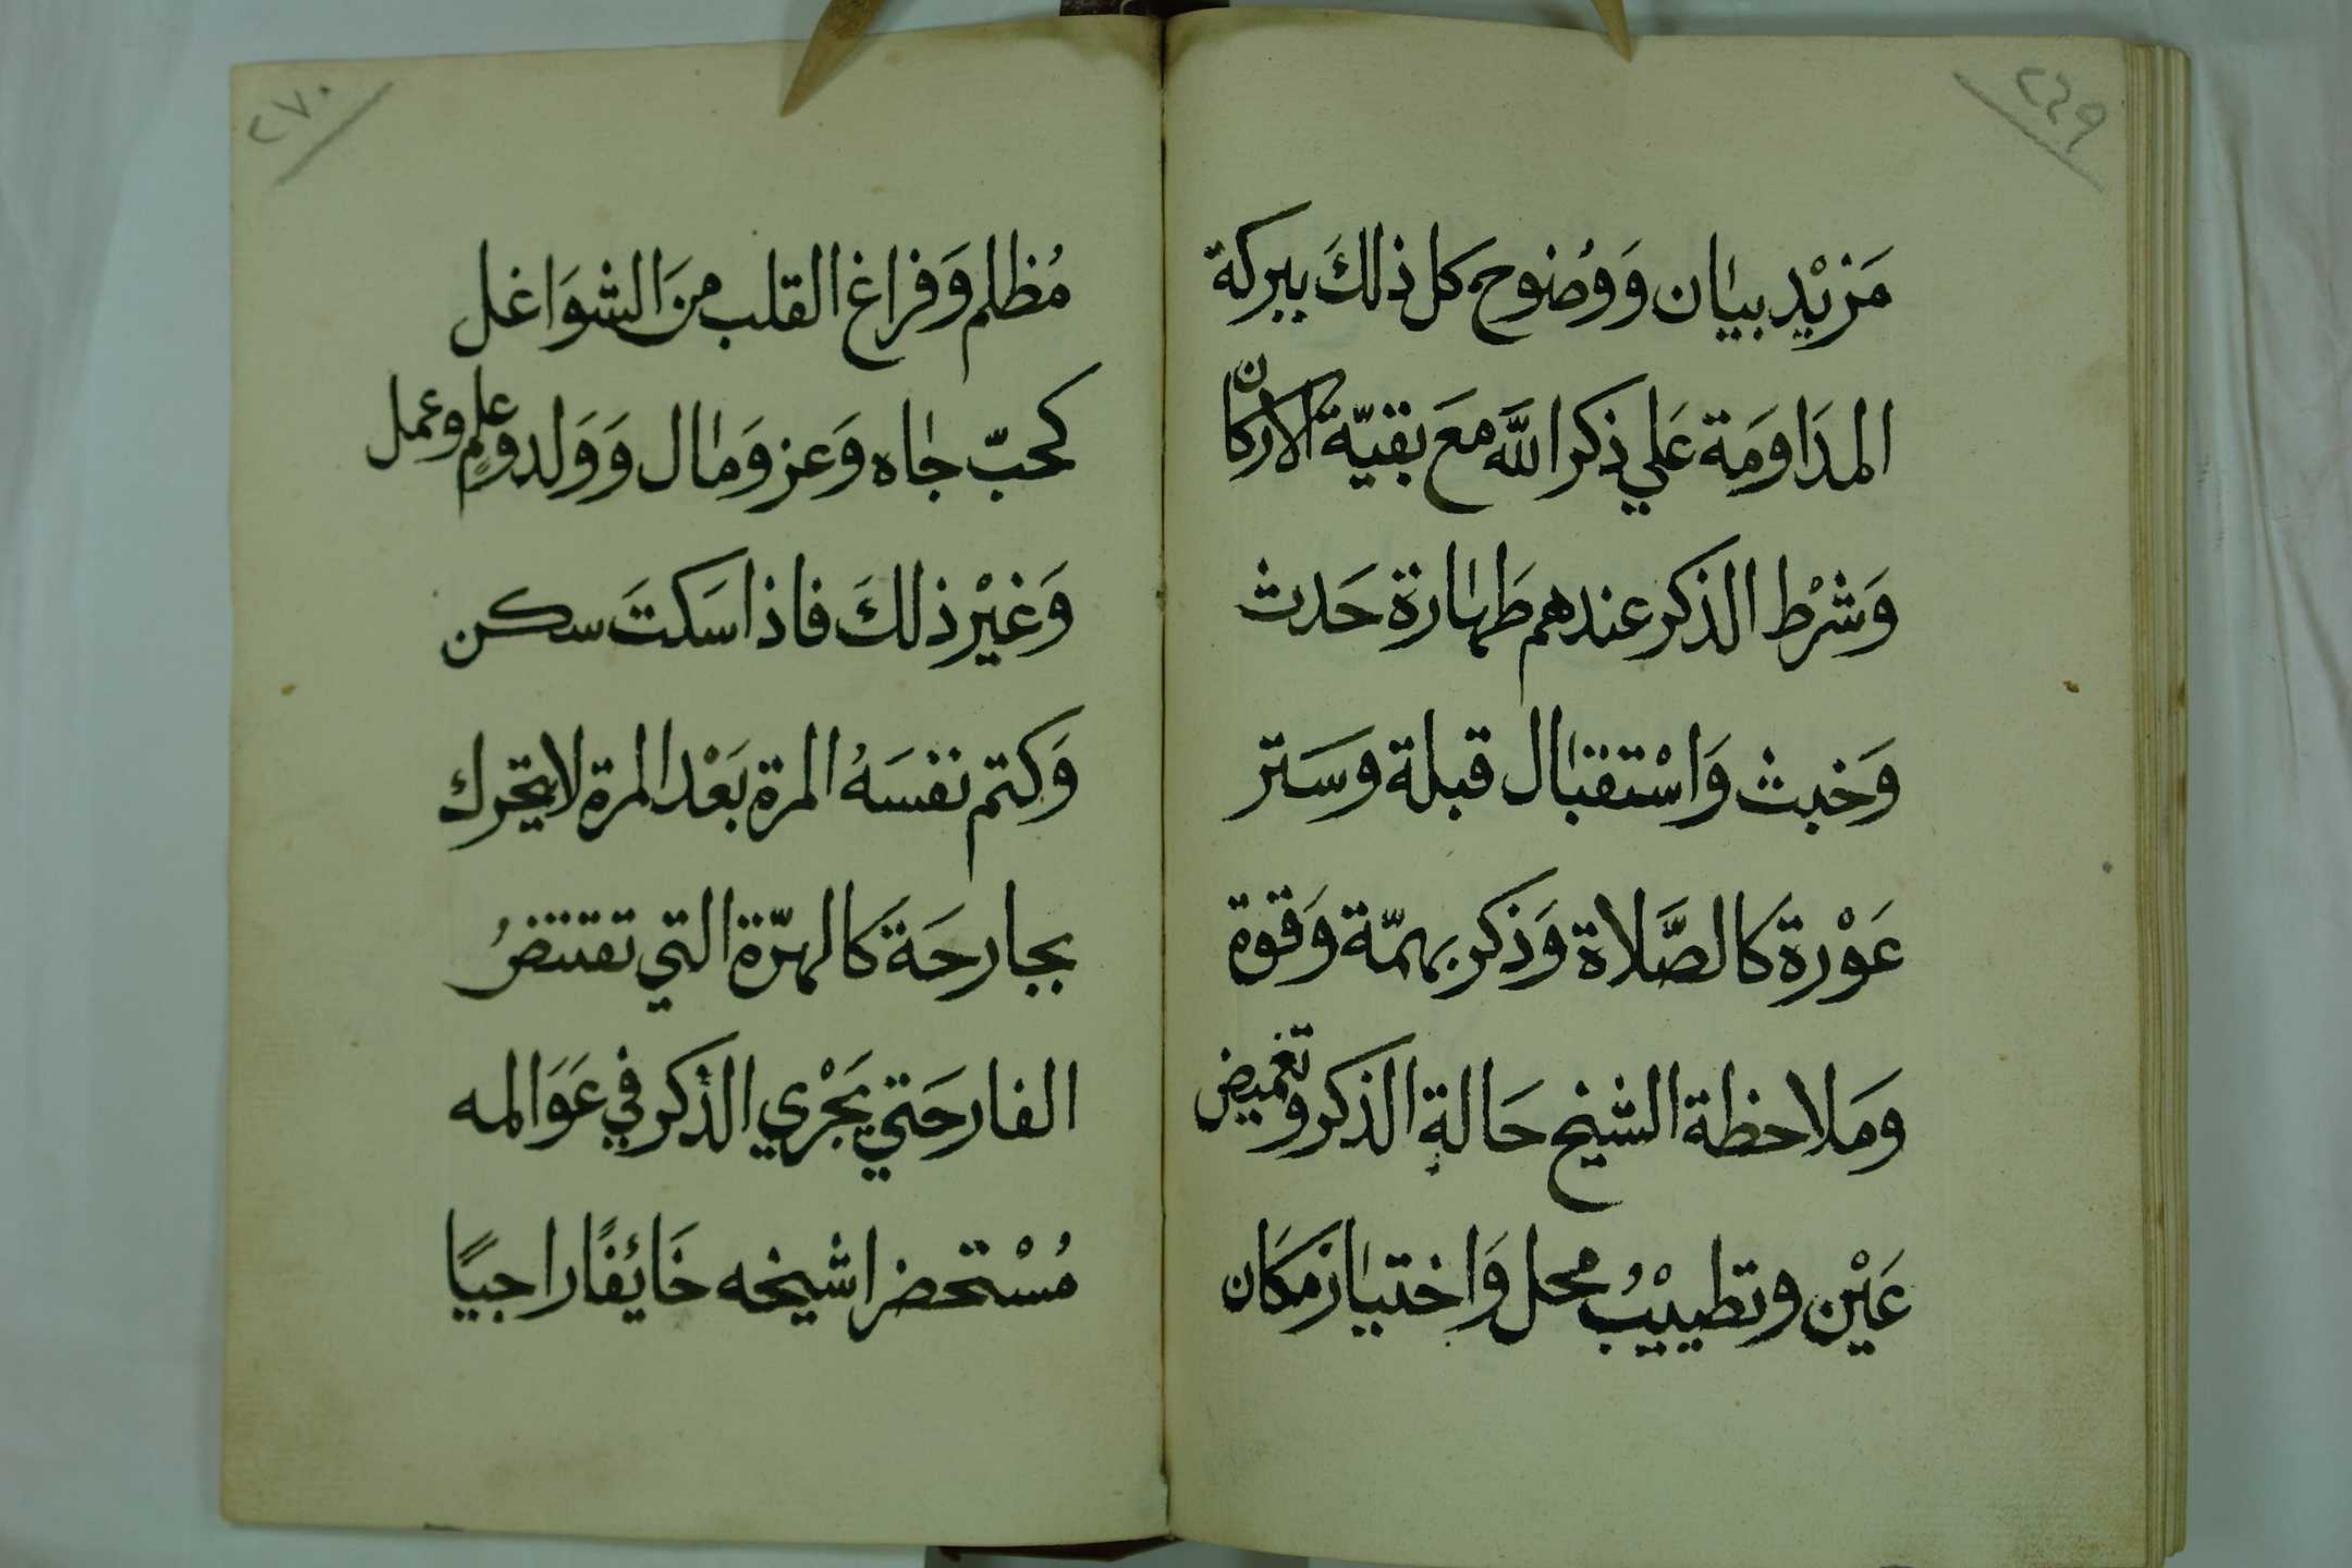 ٢٦٩
مَزيْد بيان وَوُضوح كل ذلكَ ببركة
المدَاومَة عَلي ذكر اللَّه معَ بقيّة الاركان
وَشرْط الذكر عندهم طَهارة حَدث
وَخبث وَاسْتقبال قبلة وسَتر
عَوْرة كالصَّلاة وَذكر بهمّة وَقوة
ومَلاحظة الشيخ حَالةِ الذكر وتغميض
عَيْن وتطييْبُ محل وَاختيار مكَان
٢٧٠
مُظلم وَفراغ القلب منَ الشوَاغل
كحبّ جاه وَعز وَمال وَوَلد وعلمٍ وعمل
وَغيْر ذلكَ فاذا سَكتَ سكن
وَكتم نفسَهُ المرة بَعْد المرة لا يتحرك
بجارحَة كَالهرّة التي تقتنصُ
الفار حَتي يَجْري الذكر في عَوَالمه
مُسْتحضرا شيخه خَائِفًا راجيًا